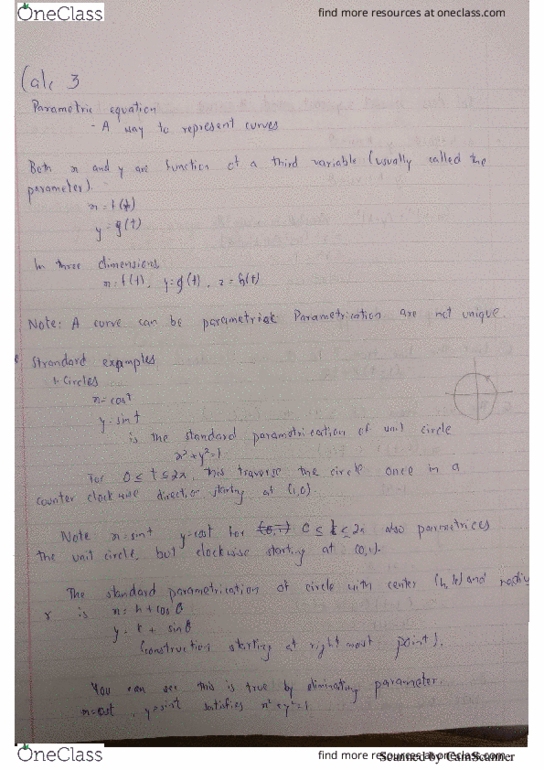 OneClass
find more resources at oneclass.com
Calc 3
Parametric equation
- A way to represent curves
Both x and y are function of a third variable (usually called the
parameter).
x = f(t)
y = g(t)
In three dimensions
x = f(t), y = g(t), z = h(t)
Note: A curve can be Parametrication are not unique.
Strandard examples
1. Circles
x = cost
y = sint
is the standard parametrication of unit circle
x² + y² = 1
For 0 ≤ t ≤ 2π, this traverse the circle once in a
counter clockwise direction starting at (1,0)
Note x = sint y = cost for 0 ≤ t ≤ 2π also parametrices
the unit circle, but clockwise starting at (0,1).
The standard parametrication of circle with center (h,k) and radius
r is x = h + cos θ
y = k + sin θ
(construction starting at right most point).
You can see this is true by eliminating parameter.
x = cost, y = sint satisfies x² + y² = 1
OneClass
find more resources at oneclass.com
Scanned by CamScanner